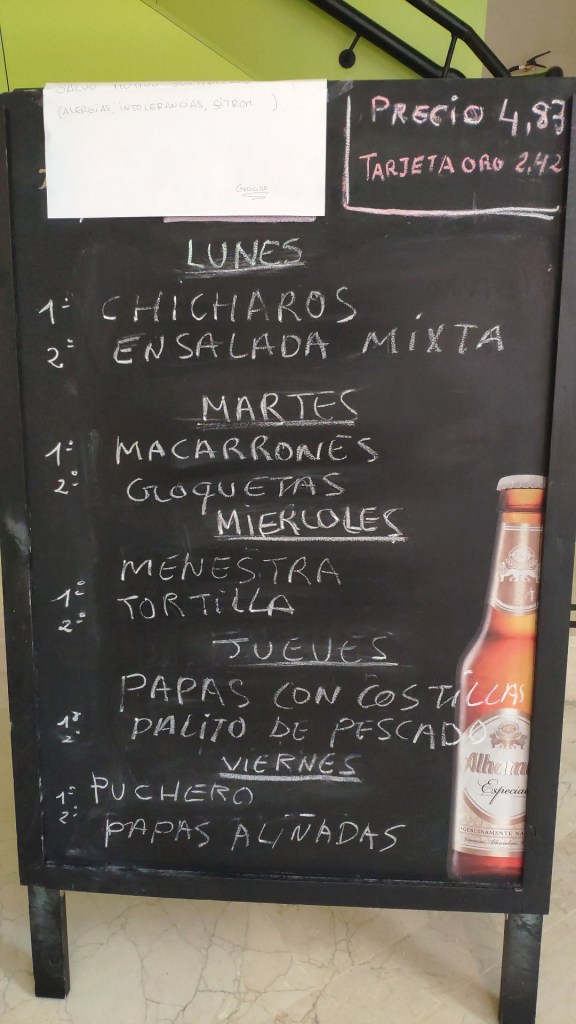 (ALERGIAS, INTOLERANCIAS, SITROM )
Gracias
PRECIO 4,83
TARJETA ORO 2,42
LUNES
1º CHICHAROS
2º ENSALADA MIXTA
MARTES
1º MACARRONES
2º CROQUETAS
MIERCOLES
MENESTRA
1º
TORTILLA
2º
JUEVES
PAPAS CON COSTILLAS
1º
PALITO DE PESCADO
2º
VIERNES
1º PUCHERO
2º
PAPAS ALIÑADAS
Especial